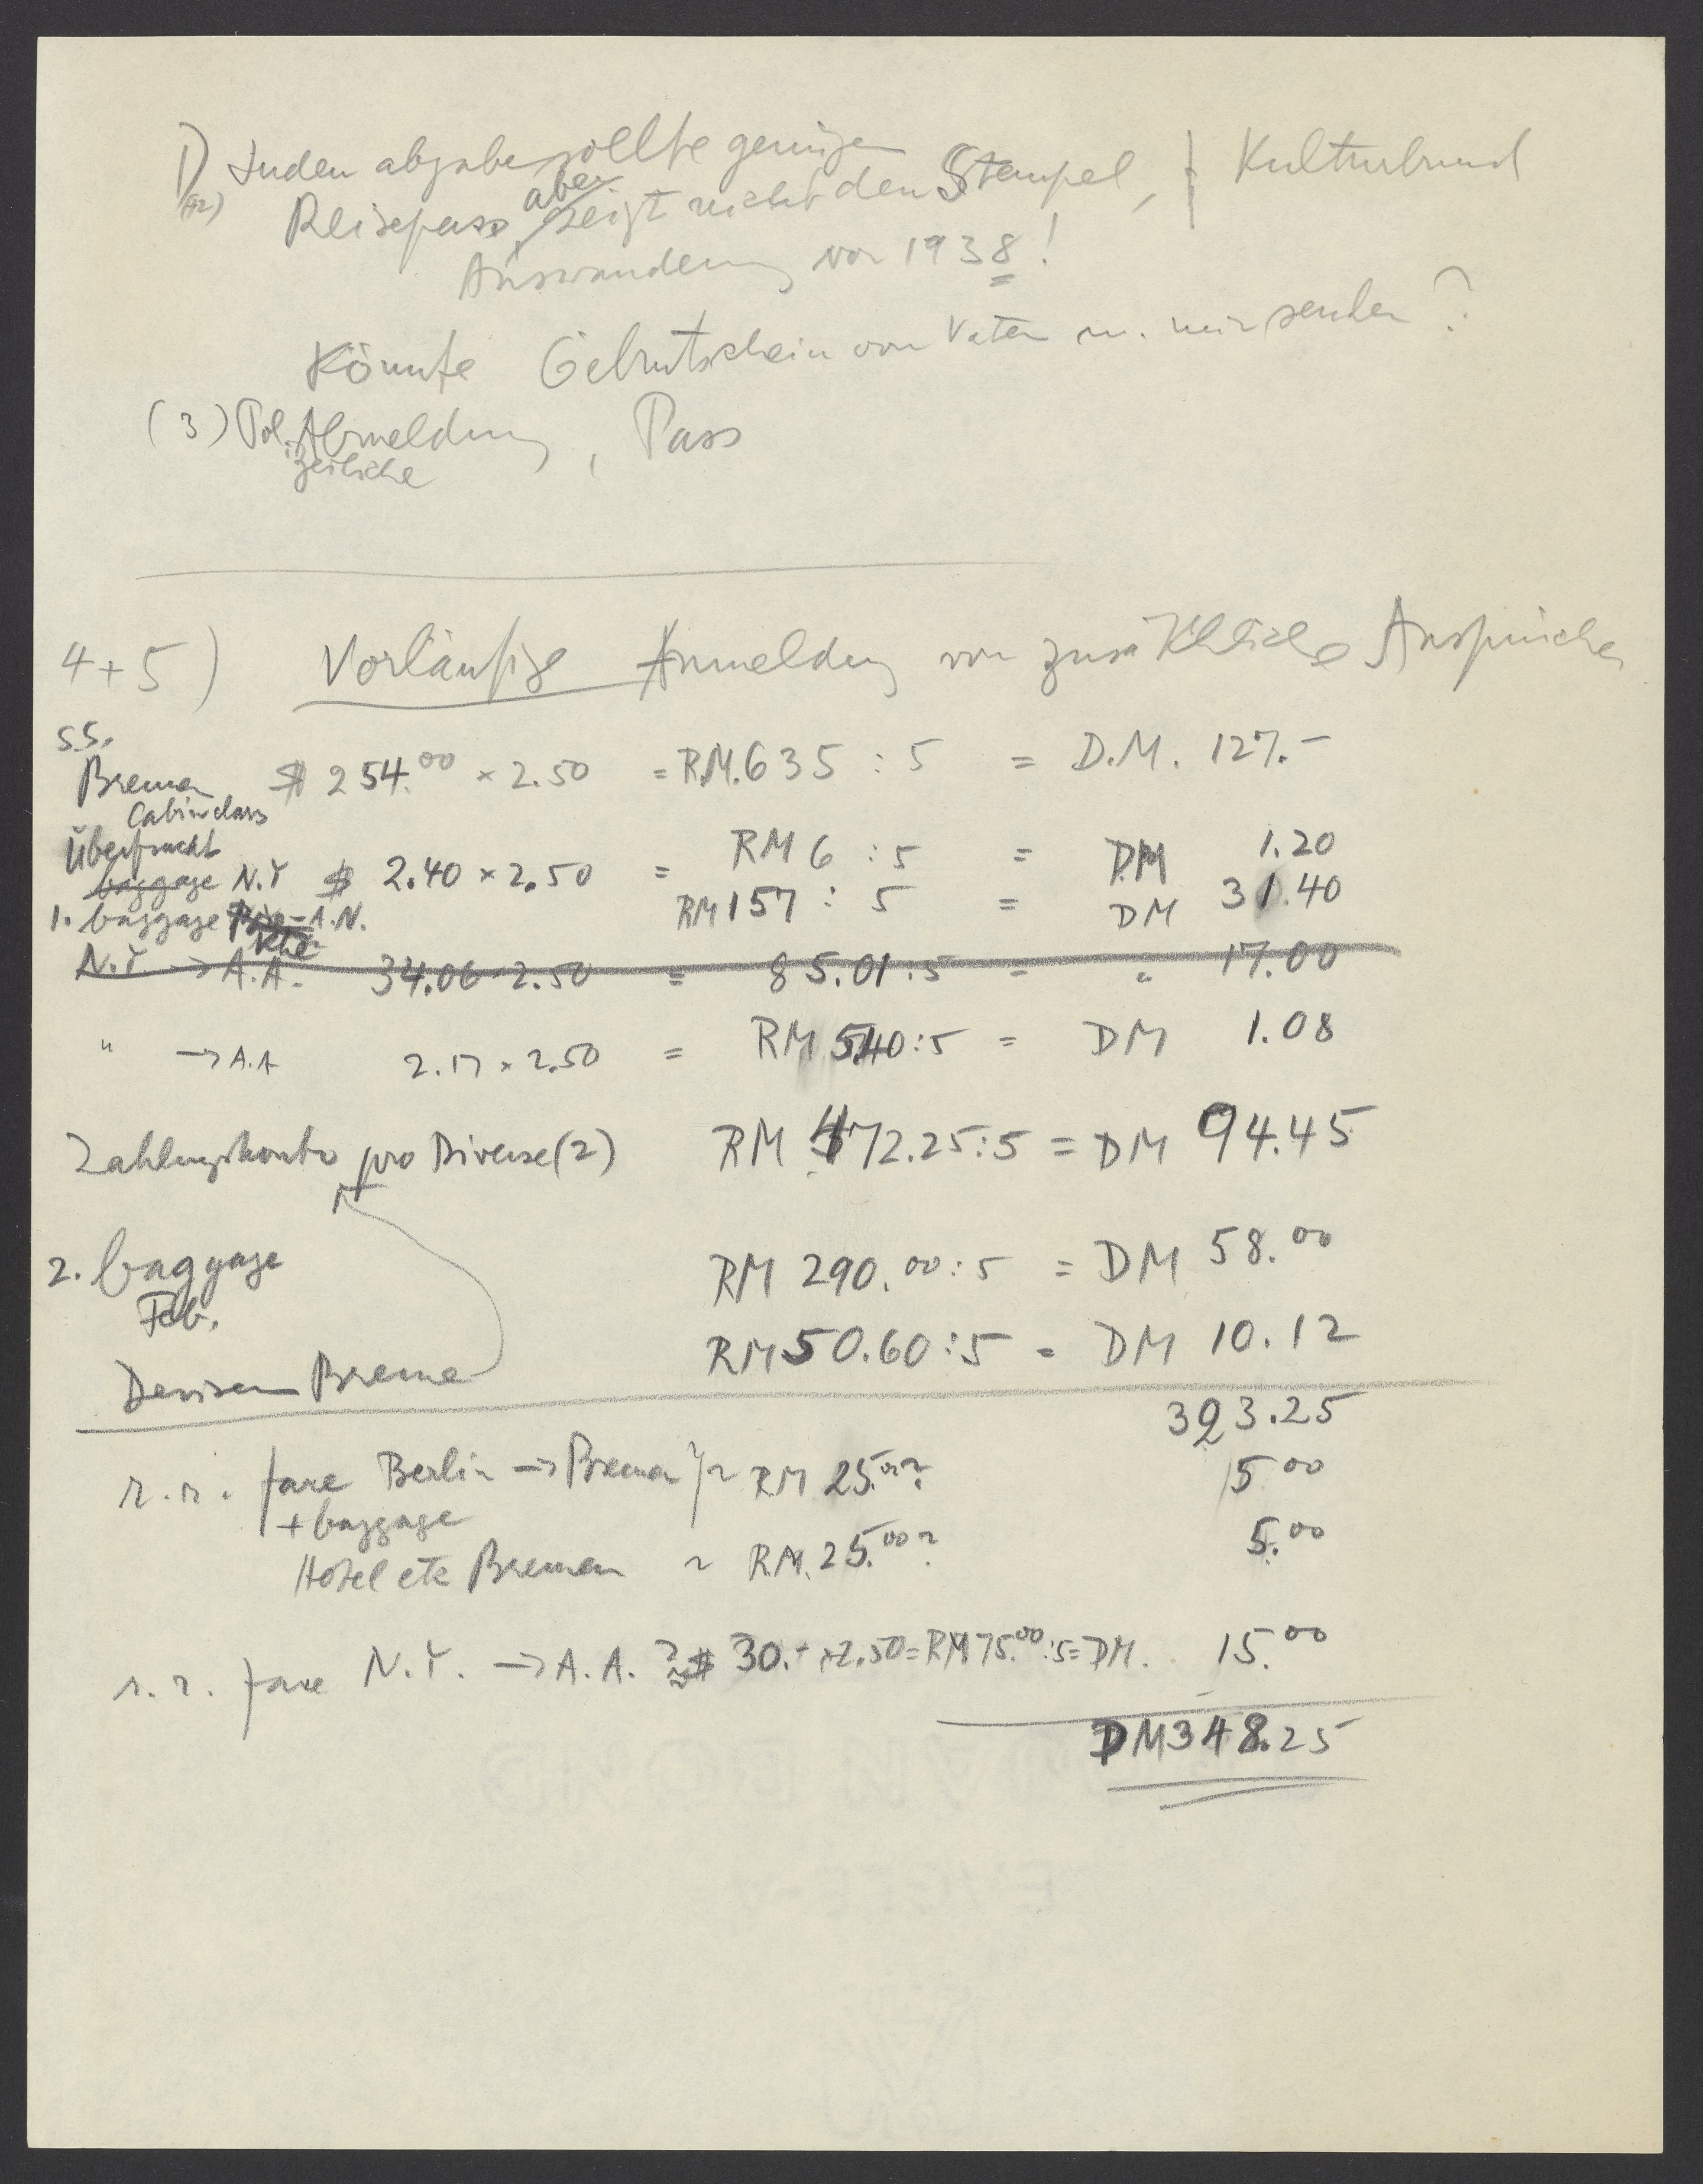 1) Judenabgabe sollte genügen
(+2) Reisepass, aber zeigt nicht den Stempel, | Kulturbund
Auswanderung vor 1938!
Könnte Geburtschein von Vater u. mir senden?
(3) Pol. Abmeldung, Pass
zeiliche
4+5) Vorläufige Anmeldung von zusätzliche Ansprüche
S.S.
Bremen $ 254.00 × 2.50 = R.M. 635 : 5 = D.M. 127.-
Cabin class
Überfracht
baggage N.Y $ 2.40 × 2.50 = RM 6 : 5 = DM 1.20
1. baggage A.N. RM 157 : 5 = DM 31.40
N.Y → A.A. 34.06 × 2.50 = 85.01 : 5 = " 17.00
" → A.A 2.17 × 2.50 = RM 5.40 : 5 = DM 1.08
Zahlungskonto pro Diverse (2) RM 472.25 : 5 = DM 94.45
2. baggage RM 290.00 : 5 = DM 58.00
Feb.
Devisen Breme RM 50.60 : 5 = DM 10.12
323.25
r.r. fare Berlin → Bremen } ~ RM 25.00? 5.00
+ baggage
Hotel etc Bremen ~ RM. 25.00? 5.00
r.r. fare N.Y. → A.A. ? ≈ $ 30.- × 2.50 = RM 75.00 : 5 = DM. 15.00
DM 348.25